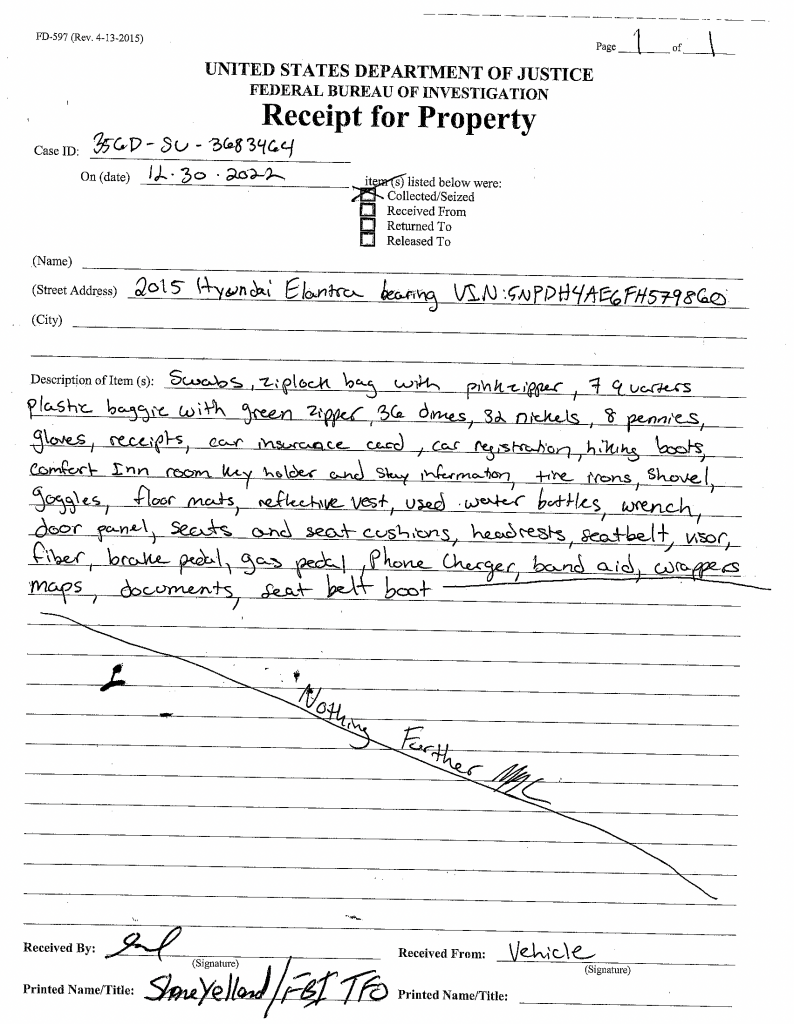 FD-597 (Rev. 4-13-2015)
Page 1 of 1
UNITED STATES DEPARTMENT OF JUSTICE
FEDERAL BUREAU OF INVESTIGATION
Receipt for Property
Case ID: 356D-SU-3683464
On (date) 12.30.2022
item(s) listed below were:
Collected/Seized
Received From
Returned To
Released To
(Name)
(Street Address) 2015 Hyundai Elantra bearing VIN:5NPDH4AE6FH579860
(City)
Description of Item (s): Swabs, ziplock bag with pink zipper, 7 quarters
plastic baggie with green zipper, 36 dimes, 32 nickels, 8 pennies,
gloves, receipts, car insurance card, car registration, hiking boots,
comfort Inn room key holder and stay information, tire irons, shovel,
goggles, floor mats, reflective vest, used water bottles, wrench,
door panel, seats and seat cushions, headrests, seatbelt, visor,
fiber, brake pedal, gas pedal, Phone Cherger, band aid, wrappers
maps, documents, seat belt boot
Nothing Further
Received By:
(Signature)
Received From: Vehicle
(Signature)
Printed Name/Title: Yelland/FBI TFO
Printed Name/Title: